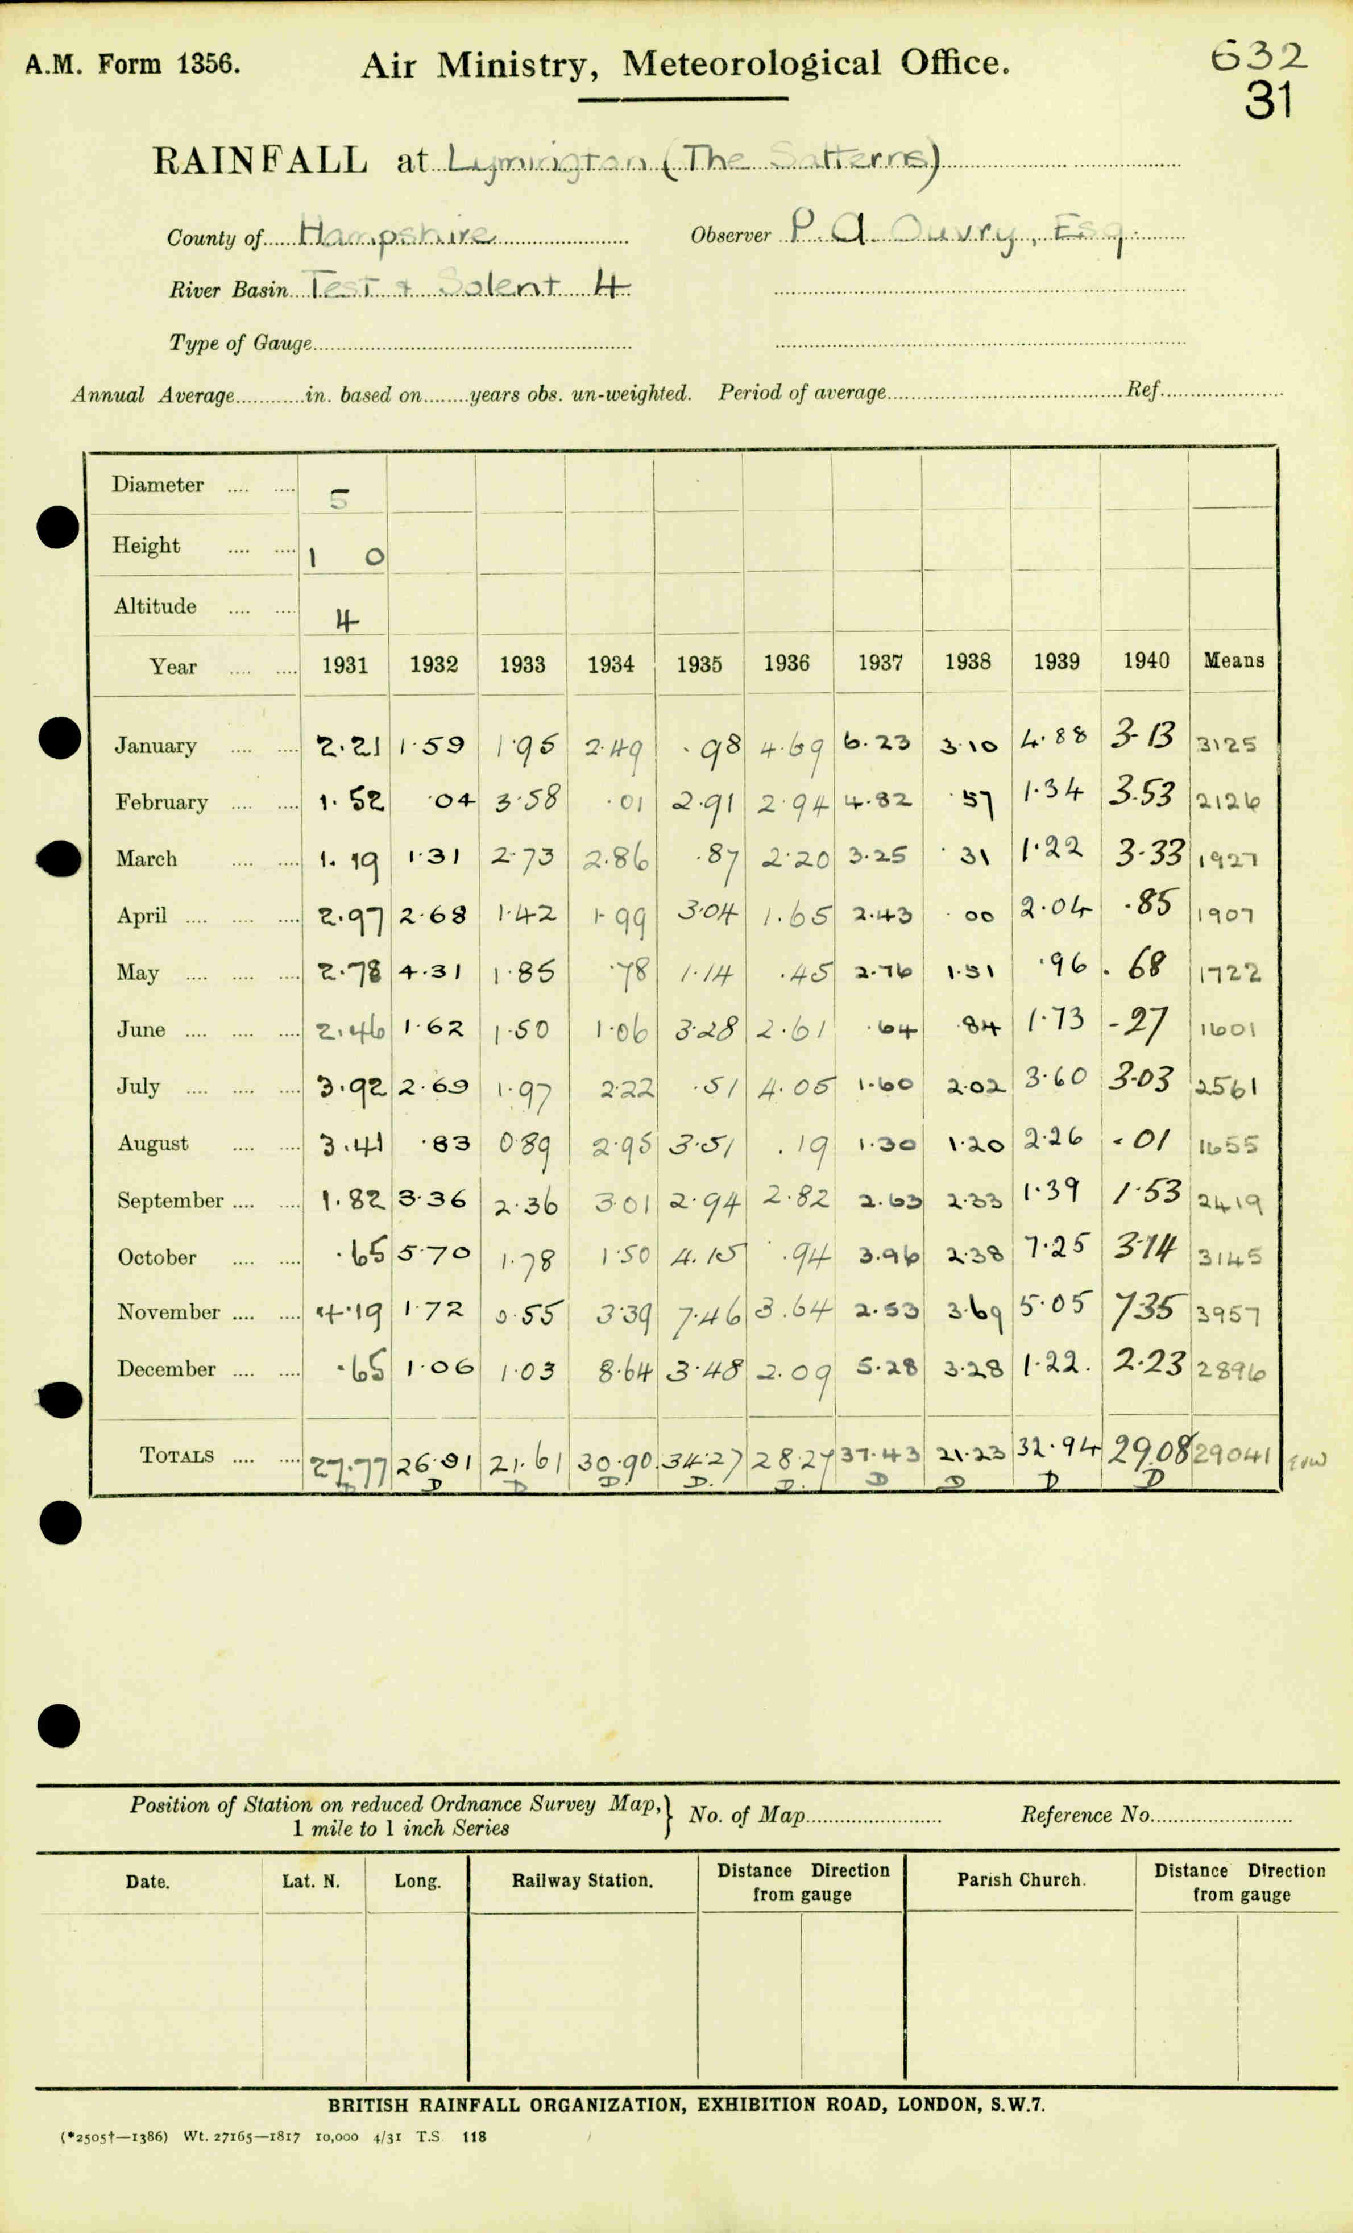 A.M. Form 1356. Air Ministry, Meteorological Office. 632
31
RAINFALL at Lymington (The Salterns)
County of Hampshire Observer P. A. Ouvry, Esq.
River Basin Test + Solent 4
Type of Gauge
Annual Average in. based on years obs. un-weighted. Period of average Ref.
Diameter 5
Height 1 0
Altitude 4
Year 1931 1932 1933 1934 1935 1936 1937 1938 1939 1940 Means
January 2.21 1.59 1.95 2.49 .98 4.69 6.23 3.10 4.88 3.13 3125
February 1.52 .04 3.58 .01 2.91 2.94 4.82 .57 1.34 3.53 2126
March 1.19 1.31 2.73 2.86 .87 2.20 3.25 .31 1.22 3.33 1927
April 2.97 2.68 1.42 1.99 3.04 1.65 2.43 .00 2.04 .85 1907
May 2.78 4.31 1.85 .78 1.14 .45 2.76 1.51 .96 .68 1722
June 2.46 1.62 1.50 1.06 3.28 2.61 .64 .84 1.73 .27 1601
July 3.92 2.69 1.97 2.22 .51 4.05 1.60 2.02 3.60 3.03 2561
August 3.41 .83 0.89 2.95 3.51 .19 1.30 1.20 2.26 .01 1655
September 1.82 3.36 2.36 3.01 2.94 2.82 2.63 2.33 1.39 1.53 2419
October .65 5.70 1.78 1.50 4.15 .94 3.96 2.38 7.25 3.14 3145
November 4.19 1.72 0.55 3.39 7.46 3.64 2.53 3.69 5.05 7.35 3957
December .65 1.06 1.03 8.64 3.48 2.09 5.28 3.28 1.22. 2.23 2896
TOTALS 27.77 26.91 21.61 30.90 34.27 28.27 37.43 21.23 32.94 29.08 29041
D D D D. D. D. D D D D
Position of Station on reduced Ordnance Survey Map, } No. of Map Reference No.
1 mile to 1 inch Series
Date. Lat. N. Long. Railway Station. Distance Direction from gauge Parish Church. Distance Direction from gauge
BRITISH RAINFALL ORGANIZATION, EXHIBITION ROAD, LONDON, S.W.7.
(*2505†—1386) Wt. 27165—1817 10,000 4/31 T.S. 118